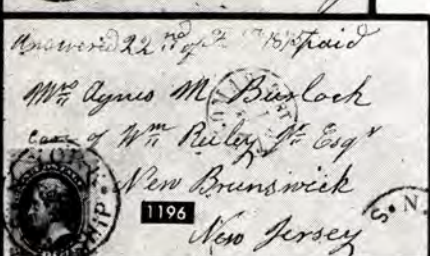 Answered 22nd of 1815 paid
Mrs Agnes M Burlock
Care of Wm Reiley Jr Esqr
New Brunswick
1196
New Jersey
S. N.
SHIP